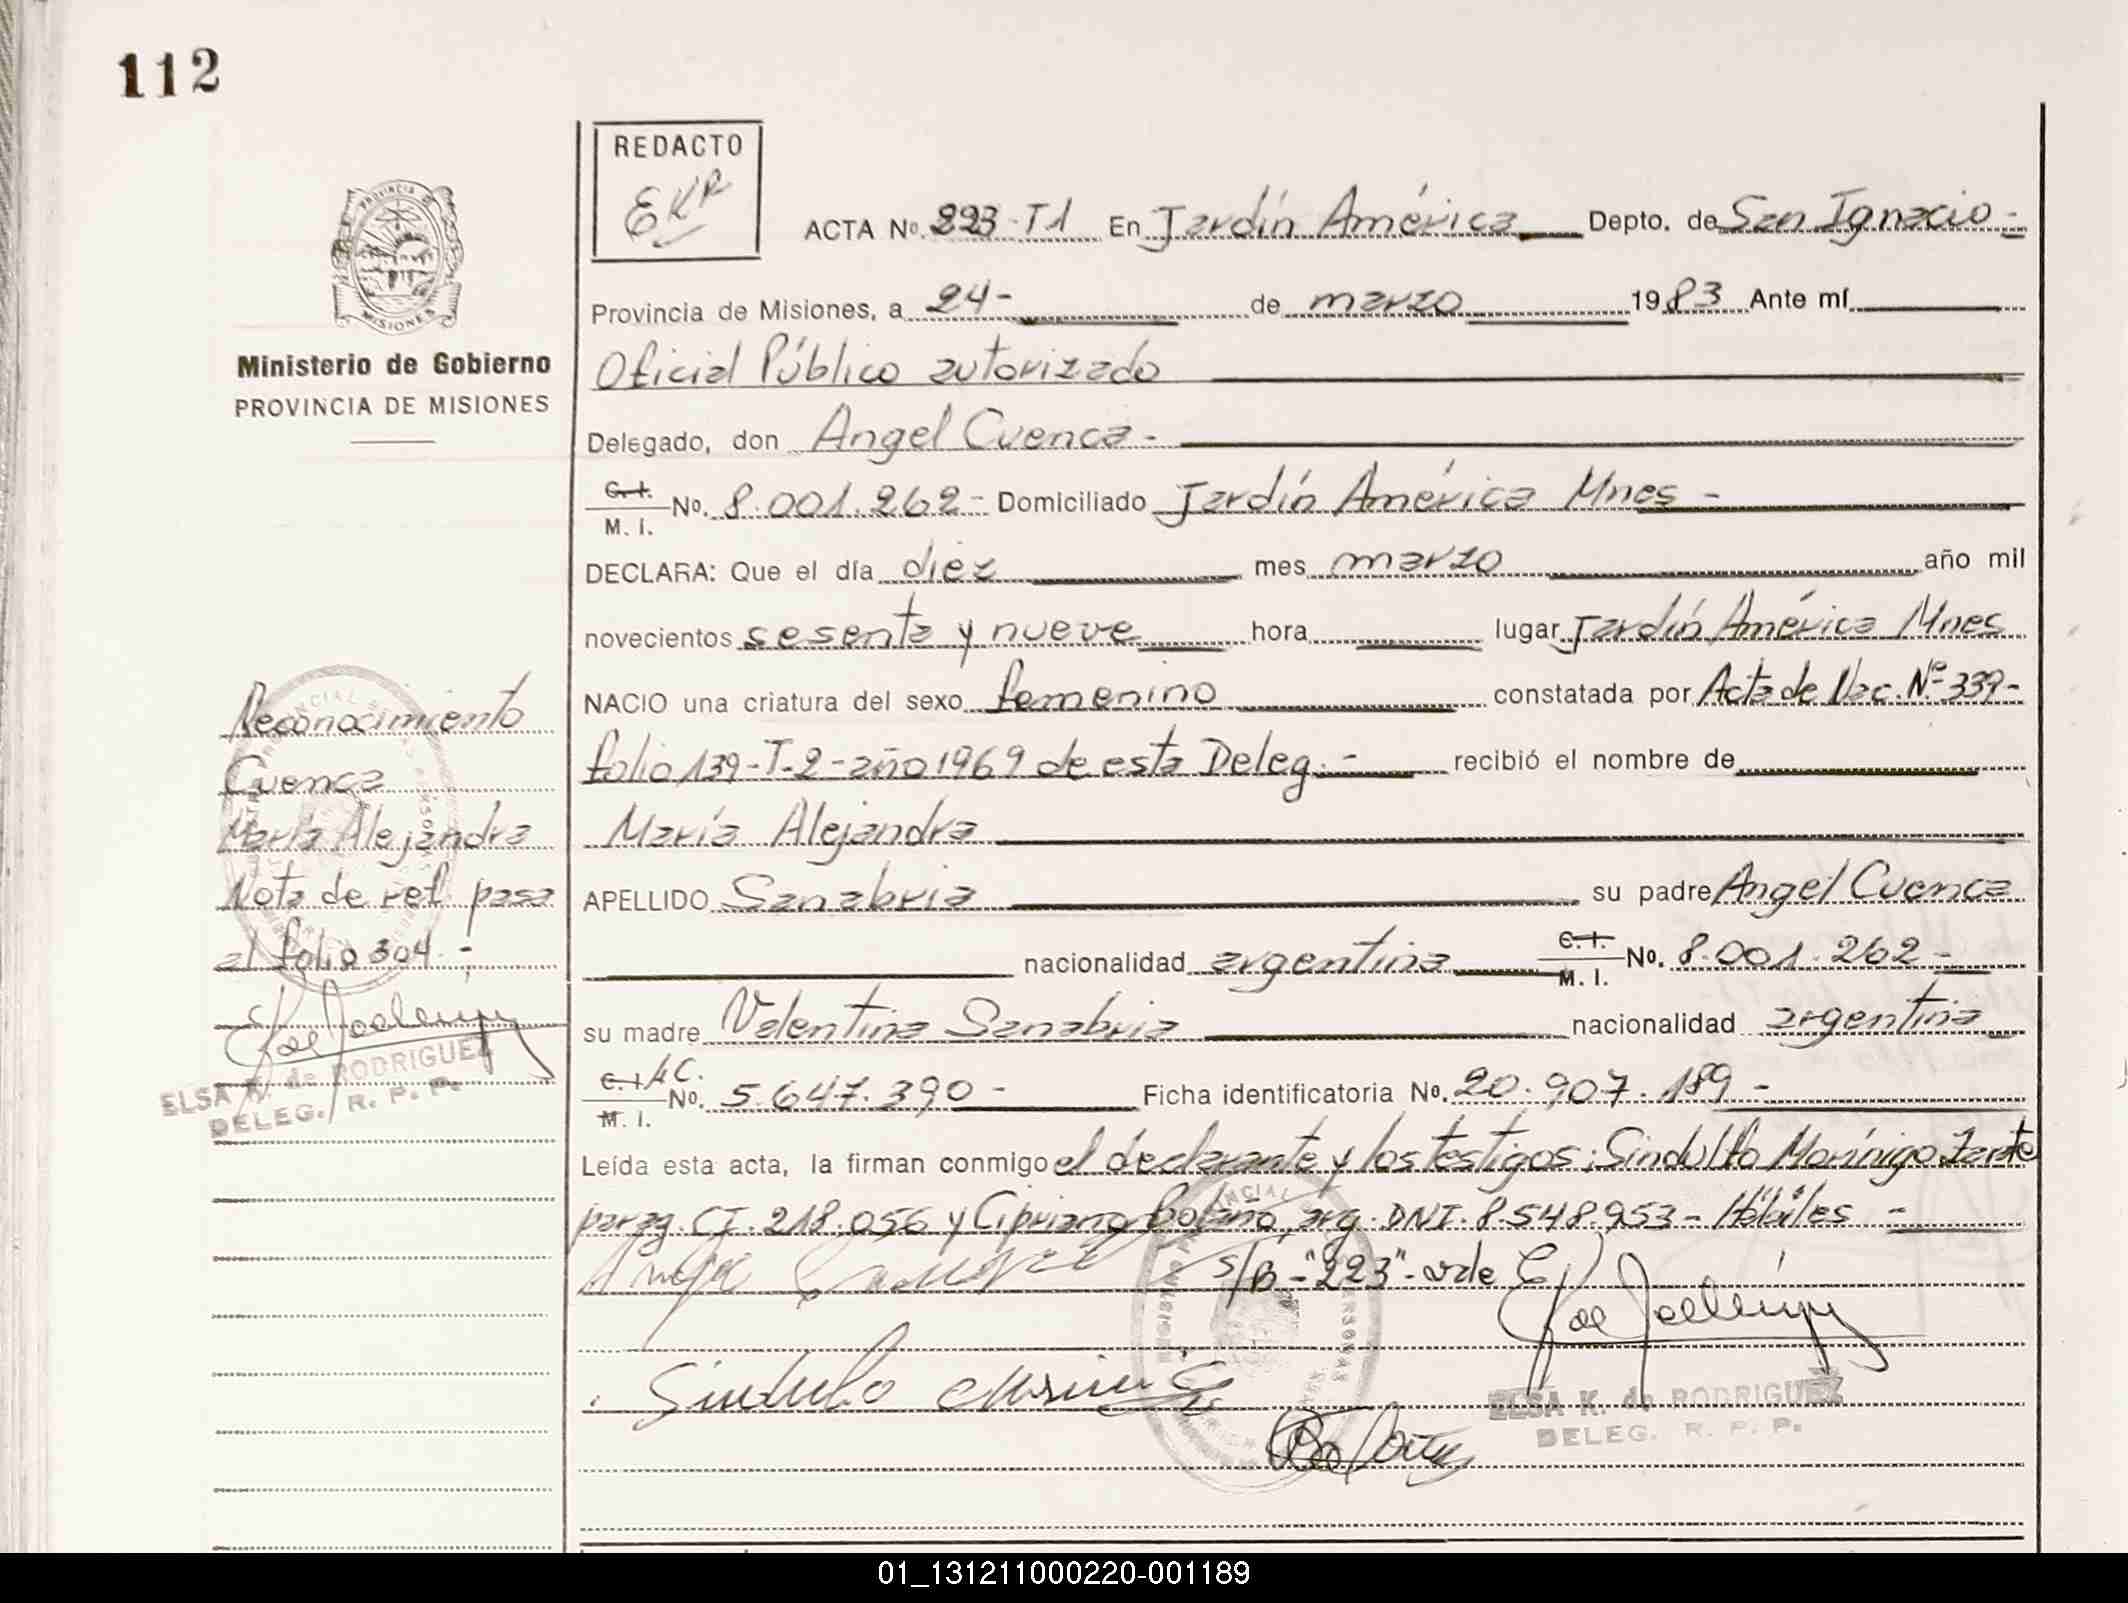 112
REDACTO
EKR
ACTA No. 223-T1 En Jardín América Depto. de San Ignacio-
Provincia de Misiones, a 24- de marzo 1983 Ante mí
Ministerio de Gobierno
PROVINCIA DE MISIONES
Oficial Público autorizado
Delegado, don Angel Cuenca-
C.I. M.I. No. 8.001.262- Domiciliado Jardín América Mnes-
DECLARA: Que el día diez mes marzo año mil
novecientos sesenta y nueve hora lugar Jardín América Mnes
NACIO una criatura del sexo femenino constatada por Acta de Nac. Nº 339-
folio 139-T-2-año 1969 de esta Deleg.- recibió el nombre de
María Alejandra
APELLIDO Sanabria su padre Angel Cuenca
nacionalidad argentina C.I. M.I. No. 8.001.262-
su madre Valentina Sanabria nacionalidad argentina
C.I. LC. M.I. No. 5.647.390- Ficha identificatoria No. 20.907.189-
Leída esta acta, la firman conmigo el declarante y los testigos: Sindulfo Morínigo Zarate
parag. CI. 218.056 y Cipriano Bolaño, arg. DNI. 8.548.953- Hábiles -
S/B-"223"-vale
ELSA K. de RODRIGUEZ
DELEG. R. P. P.
Reconocimiento
Cuenca
María Alejandra
Nota de ref. pasa
al folio 304.-
ELSA K. de RODRIGUEZ
DELEG. R. P. P.
01_131211000220-001189